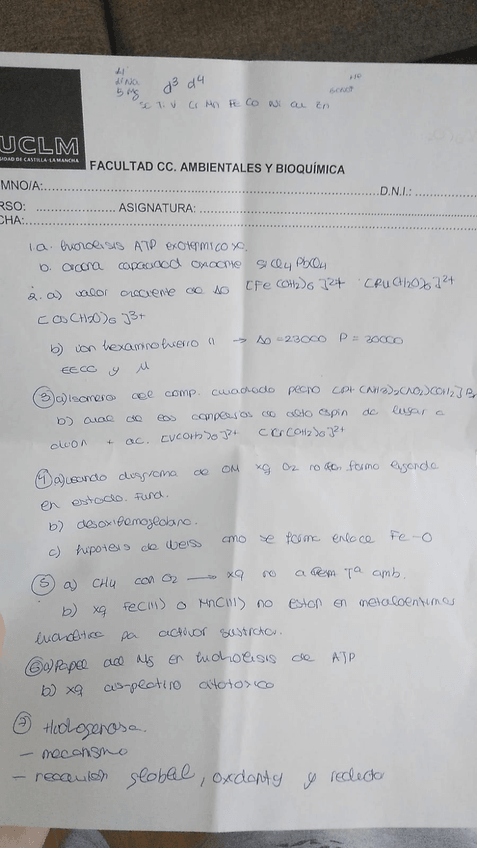 Li
Na
Mg d³ d⁴
Sc Ti V Cr Mn Fe Co Ni Cu Zn
UCLM
SIDAD DE CASTILLA-LA MANCHA
FACULTAD CC. AMBIENTALES Y BIOQUÍMICA
MNO/A: D.N.I.:
RSO: ASIGNATURA:
CHA:
1.a. hidrolisis ATP exotermico xq.
b. ordena capacidad oxidante SiCl4 PbCl4
2. a) valor creciente de Δo [Fe(OH2)6]2+ [Ru(H2O)6]2+
[Co(H2O)6]3+
b) ion hexamminofierro II → Δo = 23000 P = 30000
EECC y μ
③ a) isomeros del comp. cuadrado plano [Pt(NH3)2(NO2)(OH2)]Br
b) cual de los complejos de alto espin da lugar a
+ ac. [V(OH2)6]2+ [Cr(OH2)6]2+
④ a) usando diagrama de OM xq O2 no forma enlace
en estado fund.
b) desoxihemoglobina.
c) hipotesis de Weiss como se forma enlace Fe-O
⑤ a) CH4 con O2 → xq no a Tª amb.
b) xq Fe(III) o Mn(III) no estan en metaloenzimas
para activar sustratos.
⑥ a) Papel del Mg en hidrolisis de ATP
b) xq cis-platino citotoxico
⑦ Hidrogenasa.
- mecanismo
- reacción global, oxdante y reducto